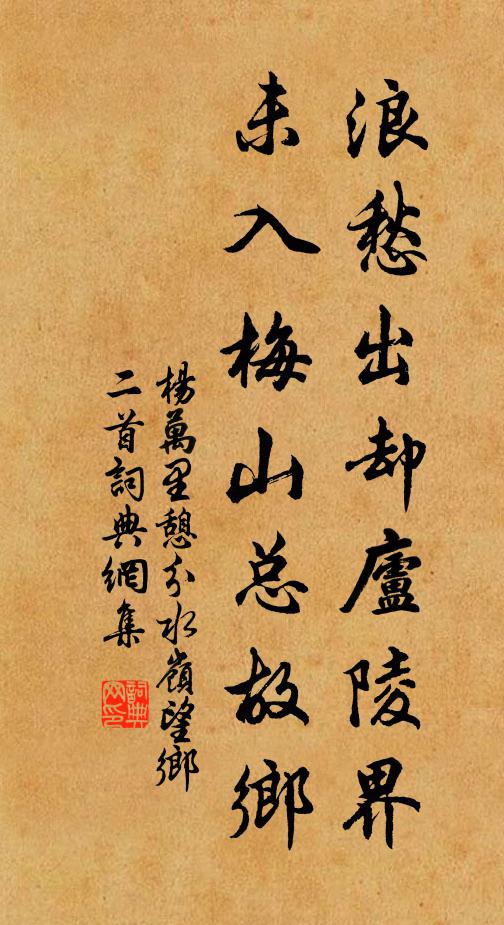 浪愁出却廬陵界
未入梅山总故鄉
楊萬里憩分水嶺望鄉
二首詞典網集
詞典
网印